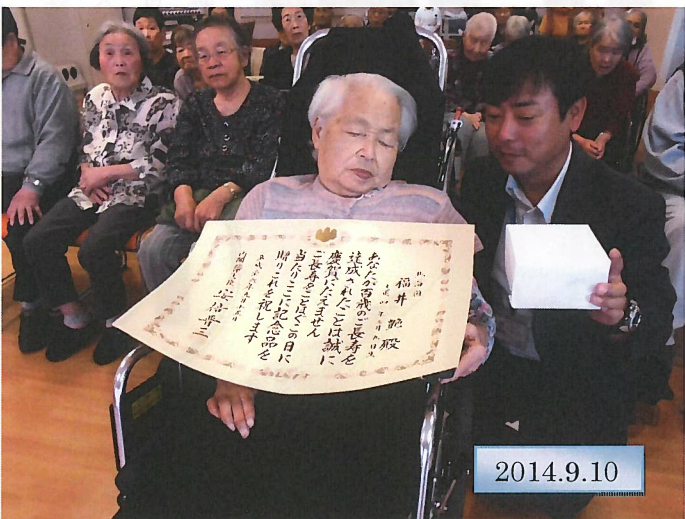 北海道
福井 艶 殿
あなたが百歳のご長寿を
達成されたことは誠に
慶賀にたえません
ご長寿をことほぐこの日に
当たりここに記念品を
贈りこれを祝します
内閣総理大臣 安倍晋三
2014.9.10